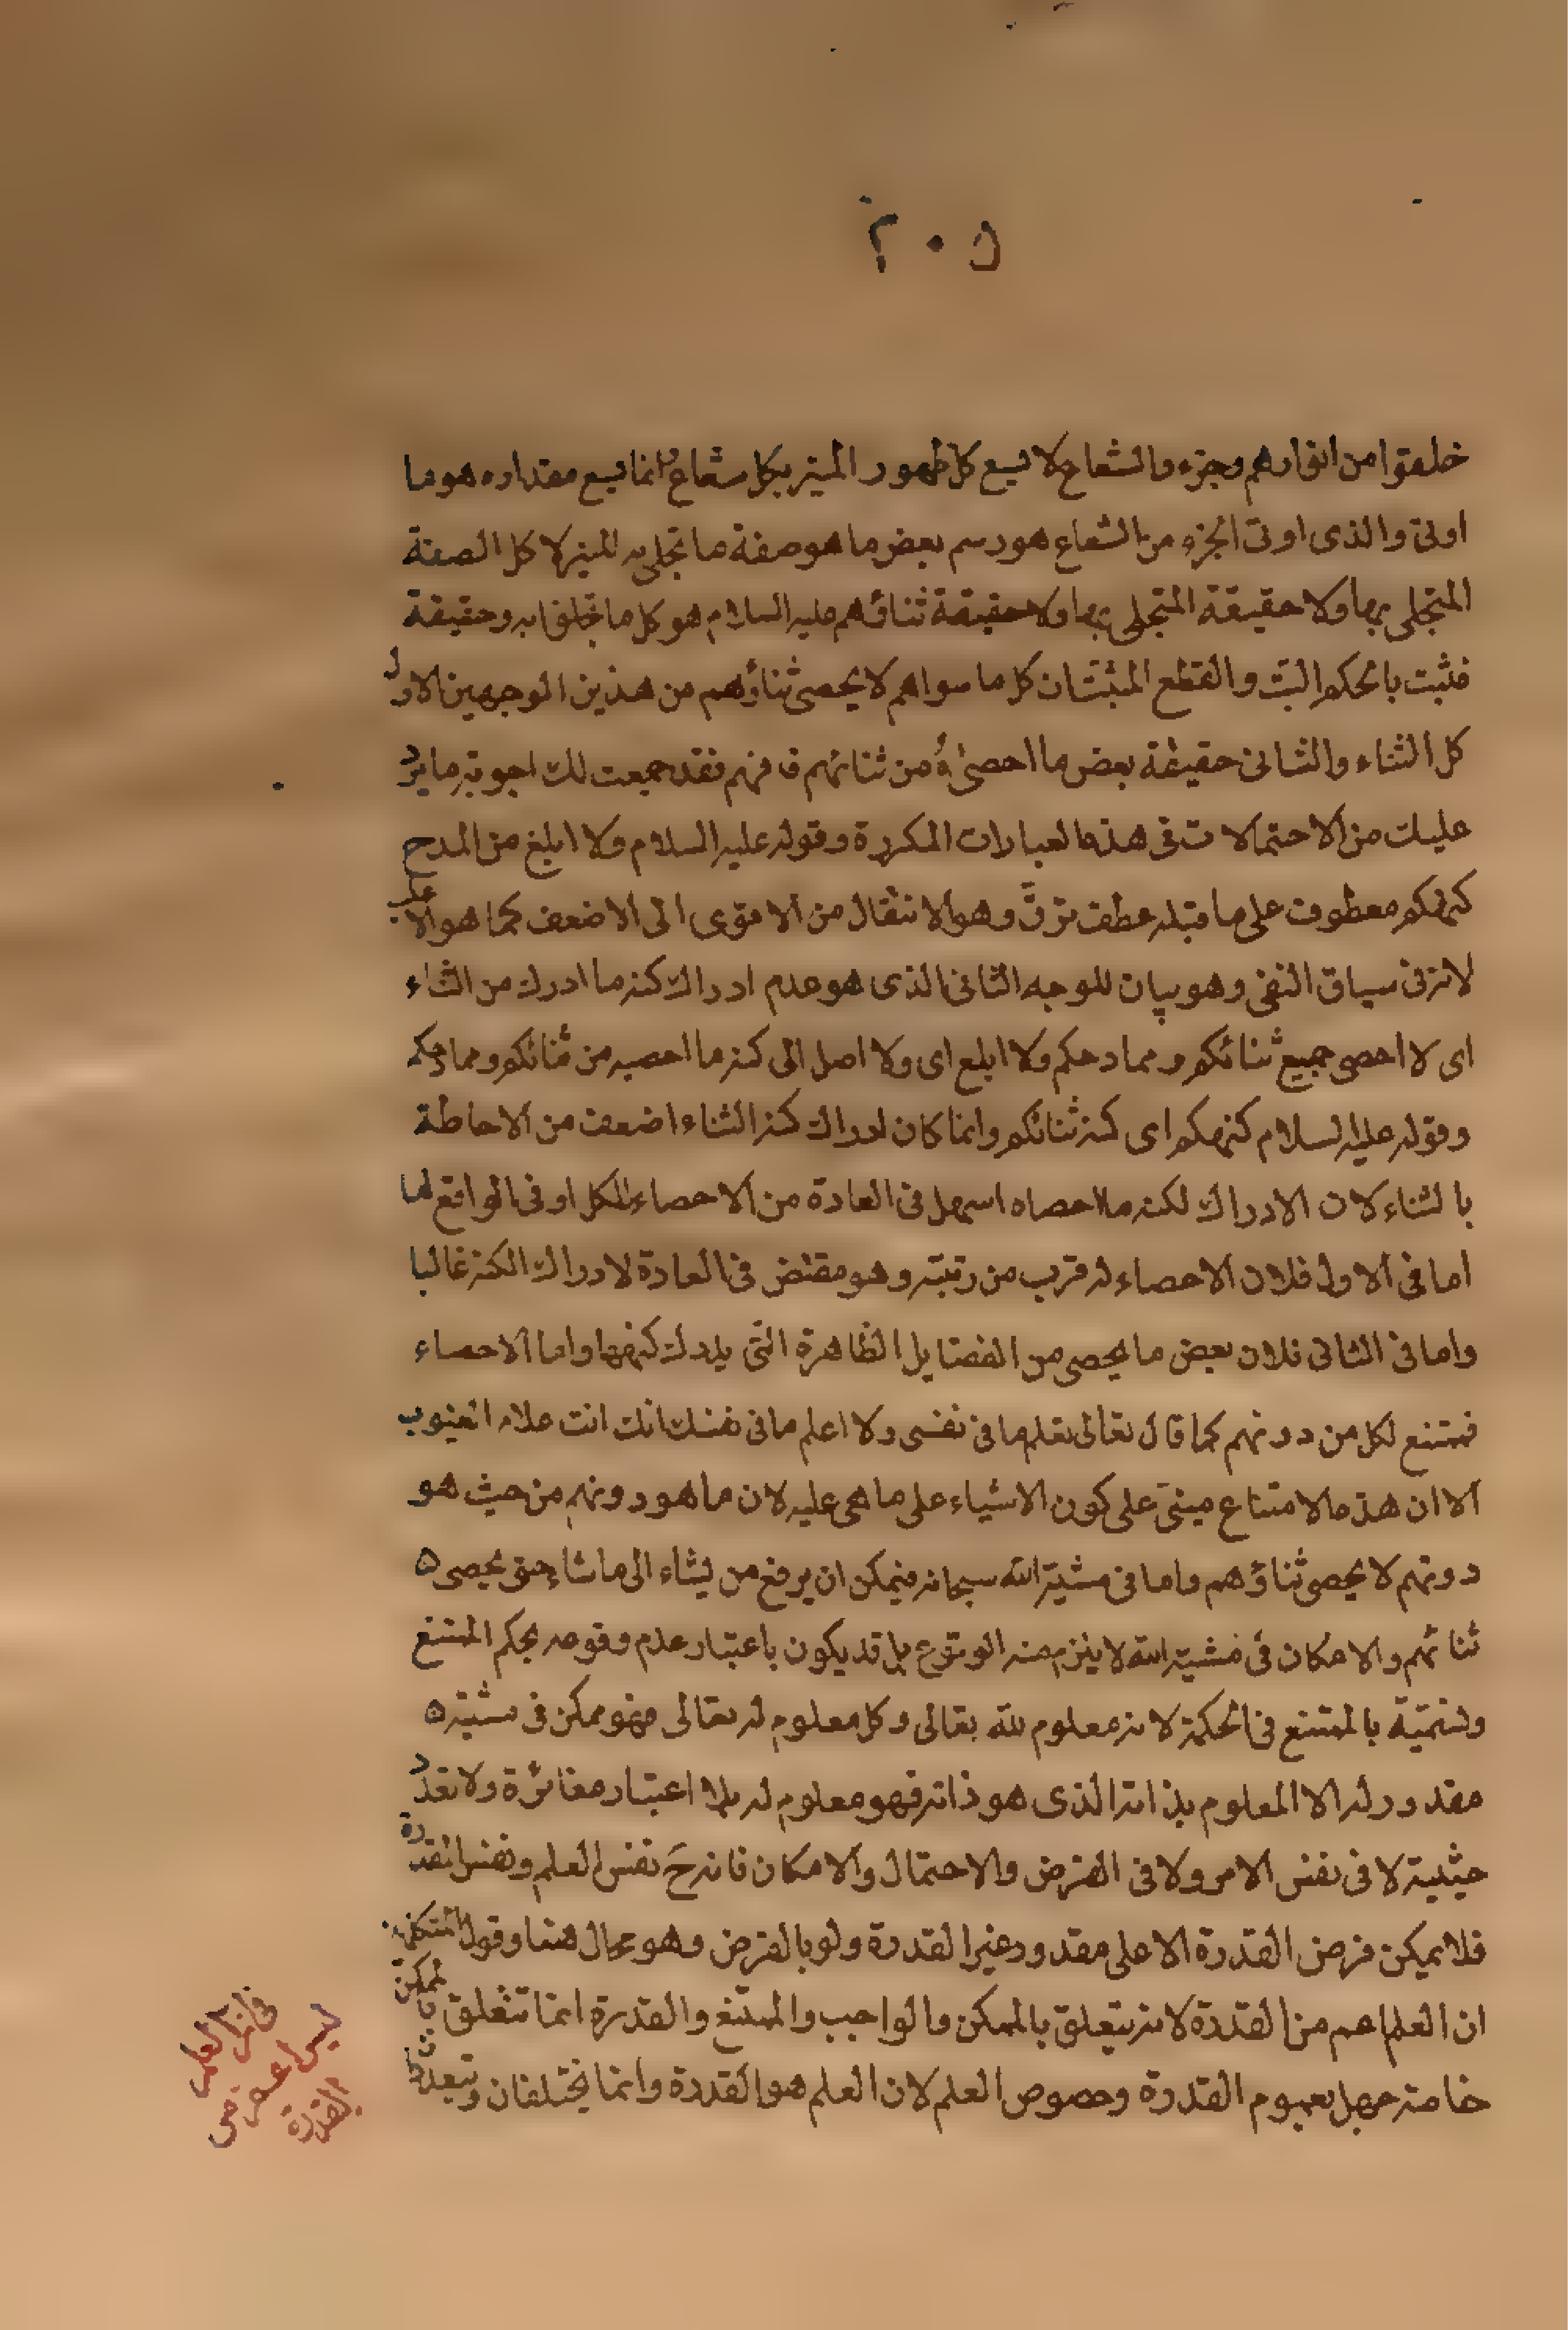 ٢٠٥
خلقوا من انوارهم وجزء والشعاع لا يسع كل ظهور المنير بكل شعاع انما يسع مقداره هو ما
اوتى والذى اوتى الجزء من الشعاع هو رسم بعض ما هو صفة ما تجلى به المنير لا كل الصفة
المتجلى بها ولا حقيقة المتجلى بها ولا حقيقة ثناؤهم عليه السلام هو كل ما خلقوا به وحقيقة
فثبت بالحكم البت والقطع المثبت ان كل ما سواهم لا يحصى ثناؤهم من هذين الوجهين الاول
كل الثناء والثانى حقيقة بعض ما احصاه من ثنائهم فافهم فقد جمعت لك اجوبة ما يرد
عليك من الاحتمالات فى هذه العبارات المكررة وقوله عليه السلام ولا ابلغ من المدح
كنهكم معطوف على ما قبله عطف ترقّ وهو الانتقال من الاقوى الى الاضعف كما هو الاغلب
لانه فى سياق النفى وهو بيان للوجه الثانى الذى هو عدم ادراك كنه ما ادرك من الثناء
اى لا احصى جميع ثنائكم ومماد حكم ولا ابلغ اى ولا اصل الى كنه ما احصيه من ثنائكم ومماد حكم
وقوله عليه السلام كنهكم اى كنه ثنائكم وانما كان ادراك كنه الثناء اضعف من الاحاطة
بالثناء لان الادراك لكنه ما احصاه اسهل فى العادة من الاحصاء للكل او فى الواقع لها
اما فى الاول فلان الاحصاء له قرب من رتبته وهو مقتض فى العادة لادراك الكنه غالبا
واما فى الثانى فلان بعض ما يحصى من الفضايل الظاهرة التى يدرك كنهها واما الاحصاء
فممتنع لكل من دونهم كما قال تعالى تعلم ما فى نفسى ولا اعلم ما فى نفسك انك انت علام الغيوب
الا ان هذه الامتناع مبنىّ على كون الاشياء على ما هى عليه لان ما هو دونهم من حيث هو
دونهم لا يحصى ثناؤهم واما فى مشية الله سبحانه فيمكن ان يرفع من يشاء الى ما شاء حتى يحصى ه
ثنائهم والامكان فى مشية الله لا يلزم منه الوقوع بل قد يكون باعتبار عدم وقوعه بحكم الممتنع
وتسميّة بالممتنع فى الحكمة لانه معلوم لله تعالى وكل معلوم له تعالى فهو ممكن فى مشيته ه
مقدور له الا المعلوم بذاته الذى هو ذاته فهو معلوم له بلا اعتبار مغائرة ولا تعدد
حيثية لا فى نفس الامر ولا فى الفرض والاحتمال والامكان فانه حَ نفس العلم ونفس القدرة
فلا يمكن فرض القدرة الا على مقدور غير القدرة ولو بالفرض وهو محال هنا وقول المتكلمين
ان العلم اهم من القدرة لانه يتعلق بالممكن والواجب والممتنع والقدرة انما تتعلق بالممكن
خاصة جهل بعموم القدرة وخصوص العلم لان العلم هو القدرة وانما يختلفان وتعددا
فى ان العلم
ليس اعم من
القدرة